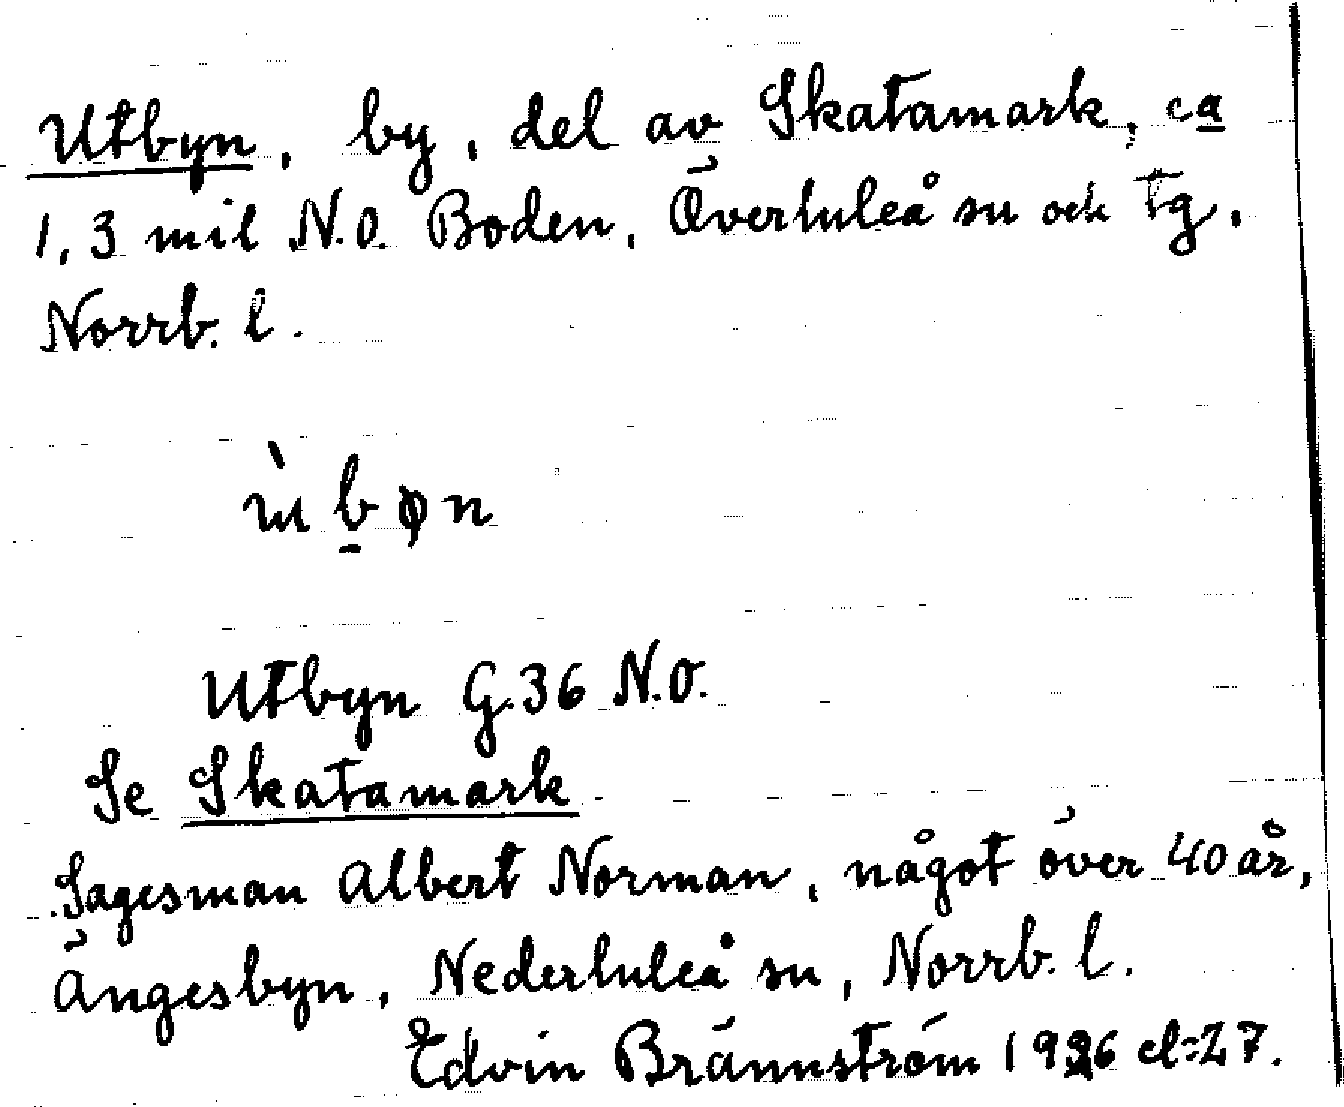 Utbyn, by, del av Skatamark, ca
1,3 mil N.O. Boden, Överluleå sn och tg,
Norrb. l.
Utbyn G.36 N.O.
Se Skatamark
Sagesman Albert Norman, något över 40 år,
Ängesbyn, Nederluleå sn, Norrb. l.
Edvin Brännström 1926 el=27.